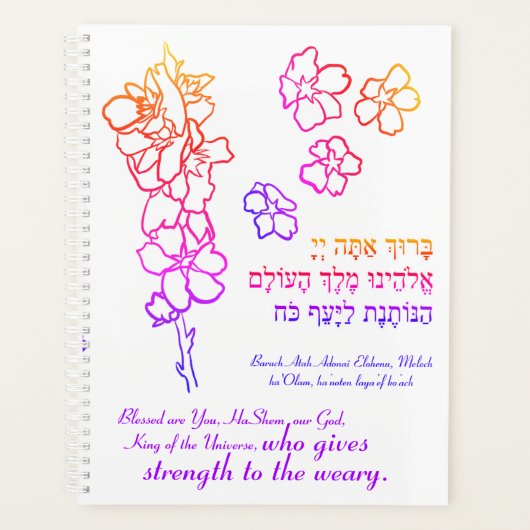 בָּרוּךְ אַתָּה יְיָ
אֱלֹהֵינוּ מֶלֶךְ הָעוֹלָם
הַנּוֹתֶנֶת לַיָּעֵף כֹּחַ
Baruch Atah Adonai Elohenu, Melech
ha'Olam, ha'noten laya'ef ko'ach
Blessed are You, HaShem our God,
King of the Universe, who gives
strength to the weary.